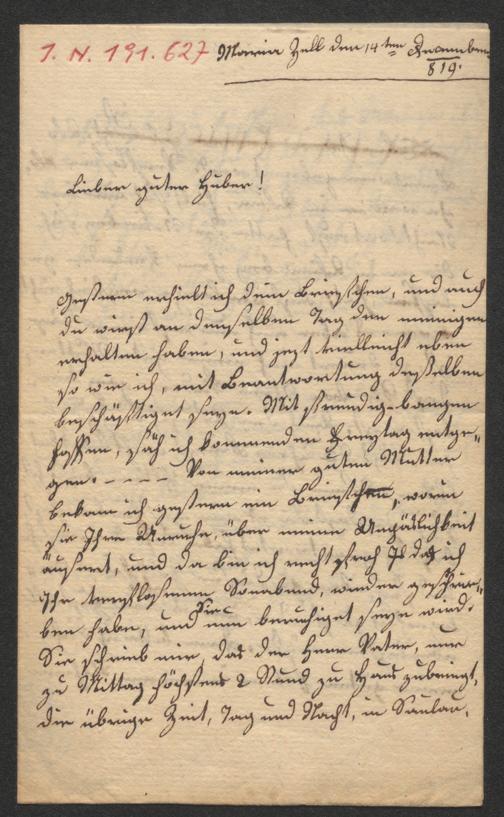 I. N. 191.627
Maria Zell den 14ten
819.
Lieber guter Huber!
Gestern erhielt ich dein Briefchen, und auch
du wirst an demselben Tag den meinigen
erhalten haben, und jezt vielleicht eben
so wie ich, mit Beantwortung desselben
beschäftiget seyn. Mit freudig-bangen
Hoffen, sah ich kommenden Freytag entge„
gen. - - - - - Von meiner guten Mutter
bekam ich gestern ein Briefchen, worin
sie Ihre Unruhe, über meine Unpäslichkeit
äusert, und da bin ich recht froh das ich
Ihr verflosenen Sonabend, wieder geschrie„
ben habe, und Sie nun beruhiget seyn wird.
Sie schrieb mir, das der Herr Vater, nur
zu Mittag höchstens 2 Stund zu Haus zubringt,
die übrige Zeit, Tag und Nacht, in